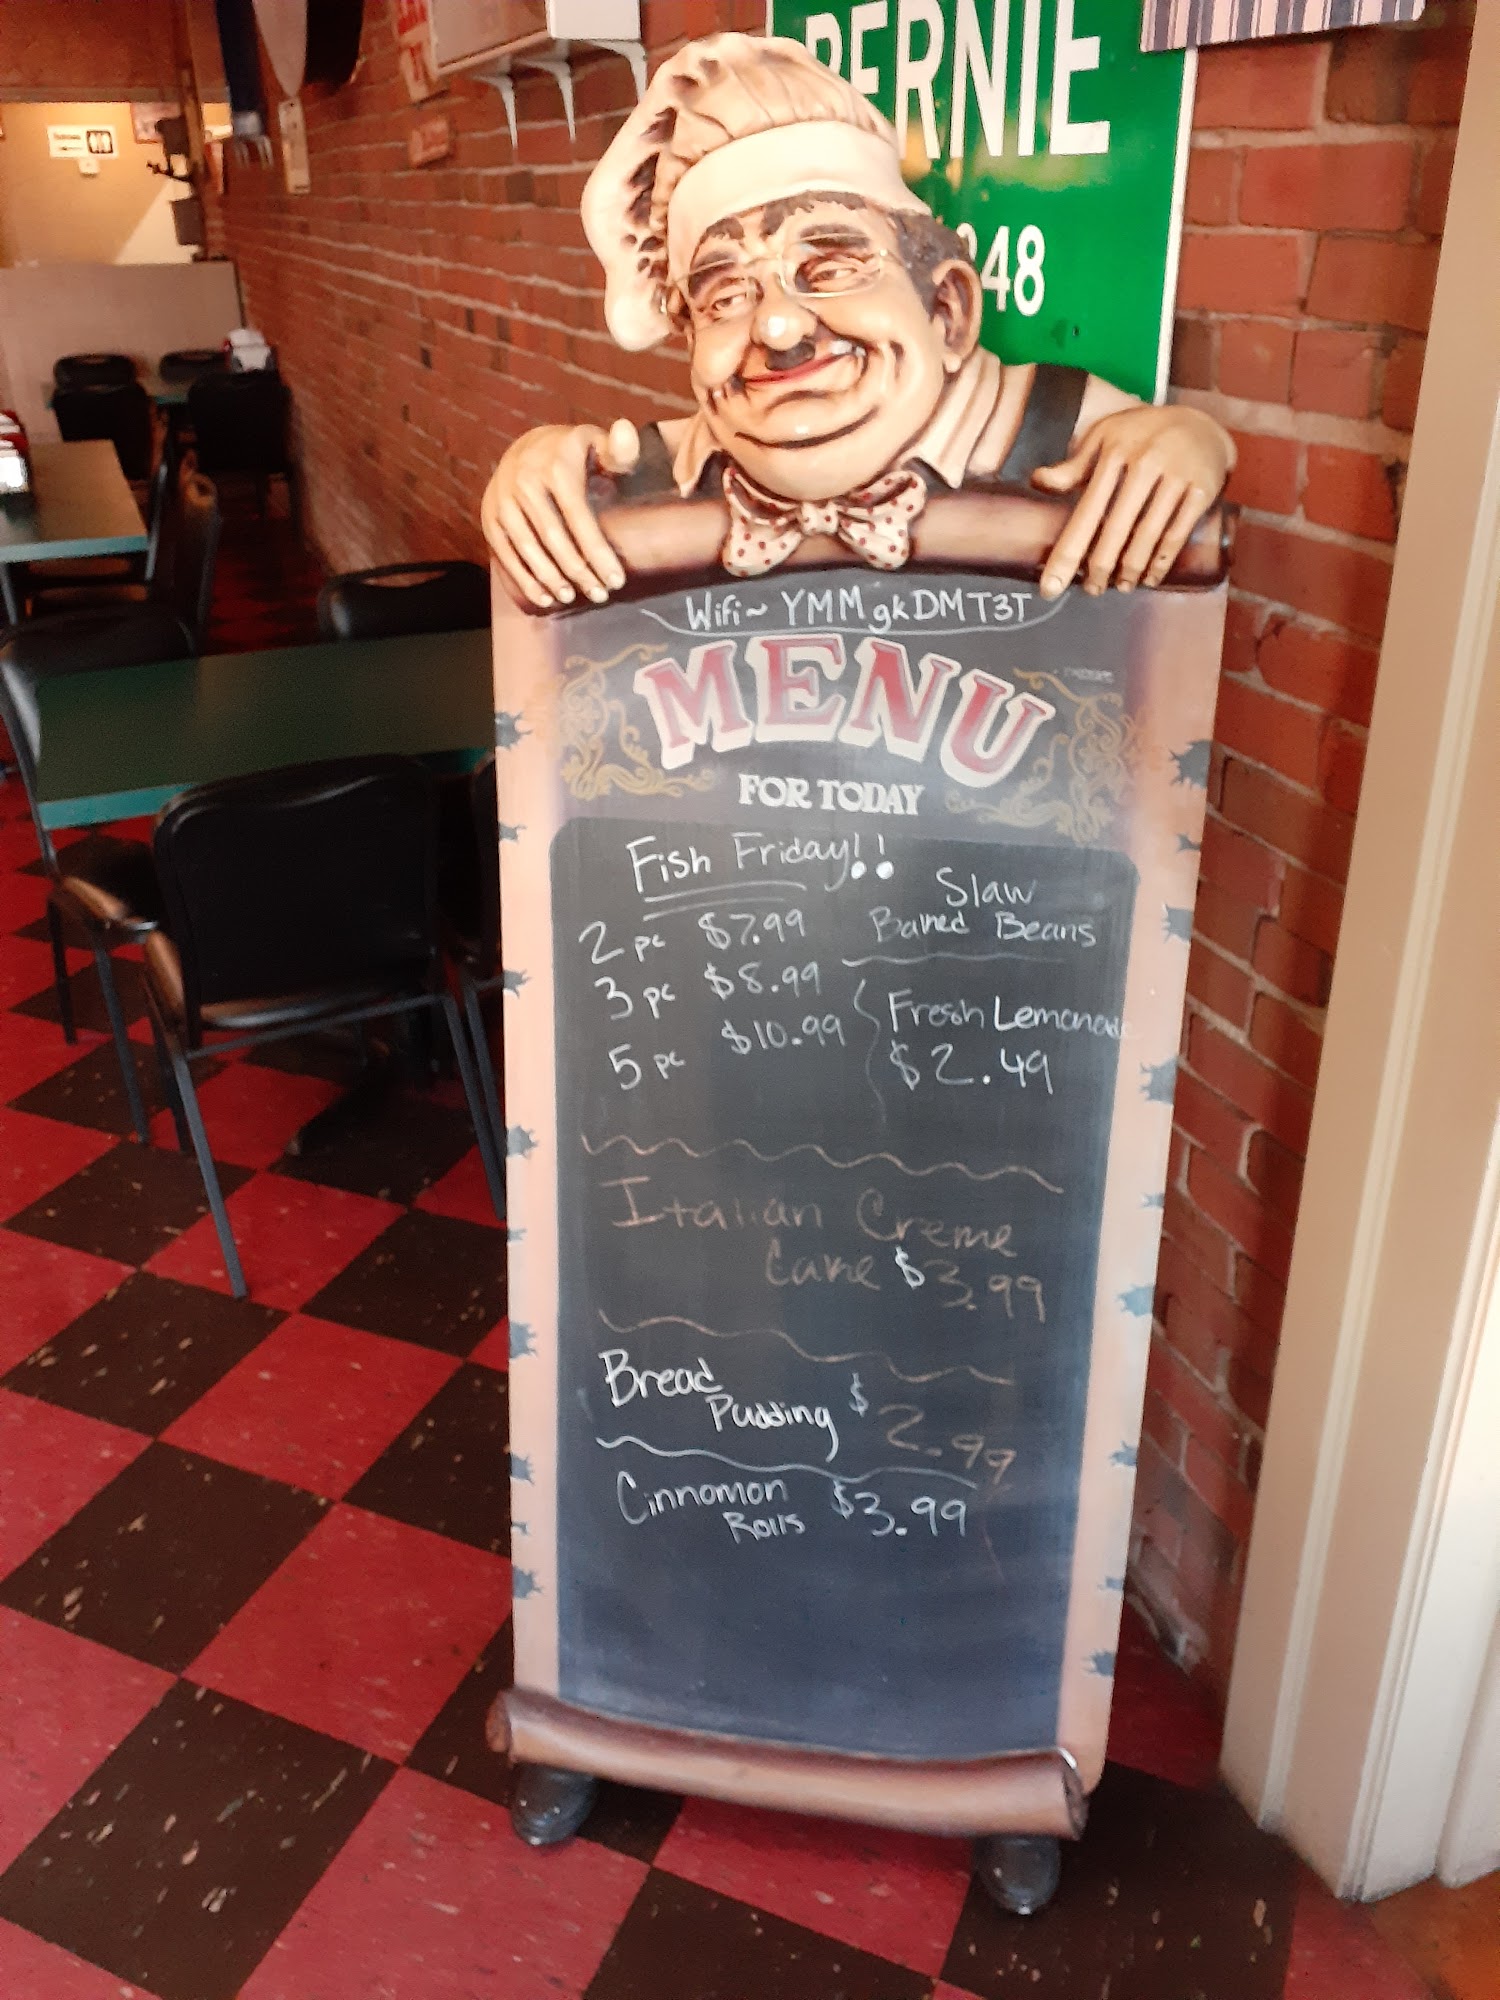 BERNIE
348
Wifi~ YMMgkDMT3T
MENU
FOR TODAY
Fish Friday!!
2 pc $7.99
3 pc $8.99
5 pc $10.99
Slaw
Baked Beans
Fresh Lemonade
$2.49
Italian Creme
Cake $3.99
Bread
Pudding $2.99
Cinnomon
Rolls $3.99